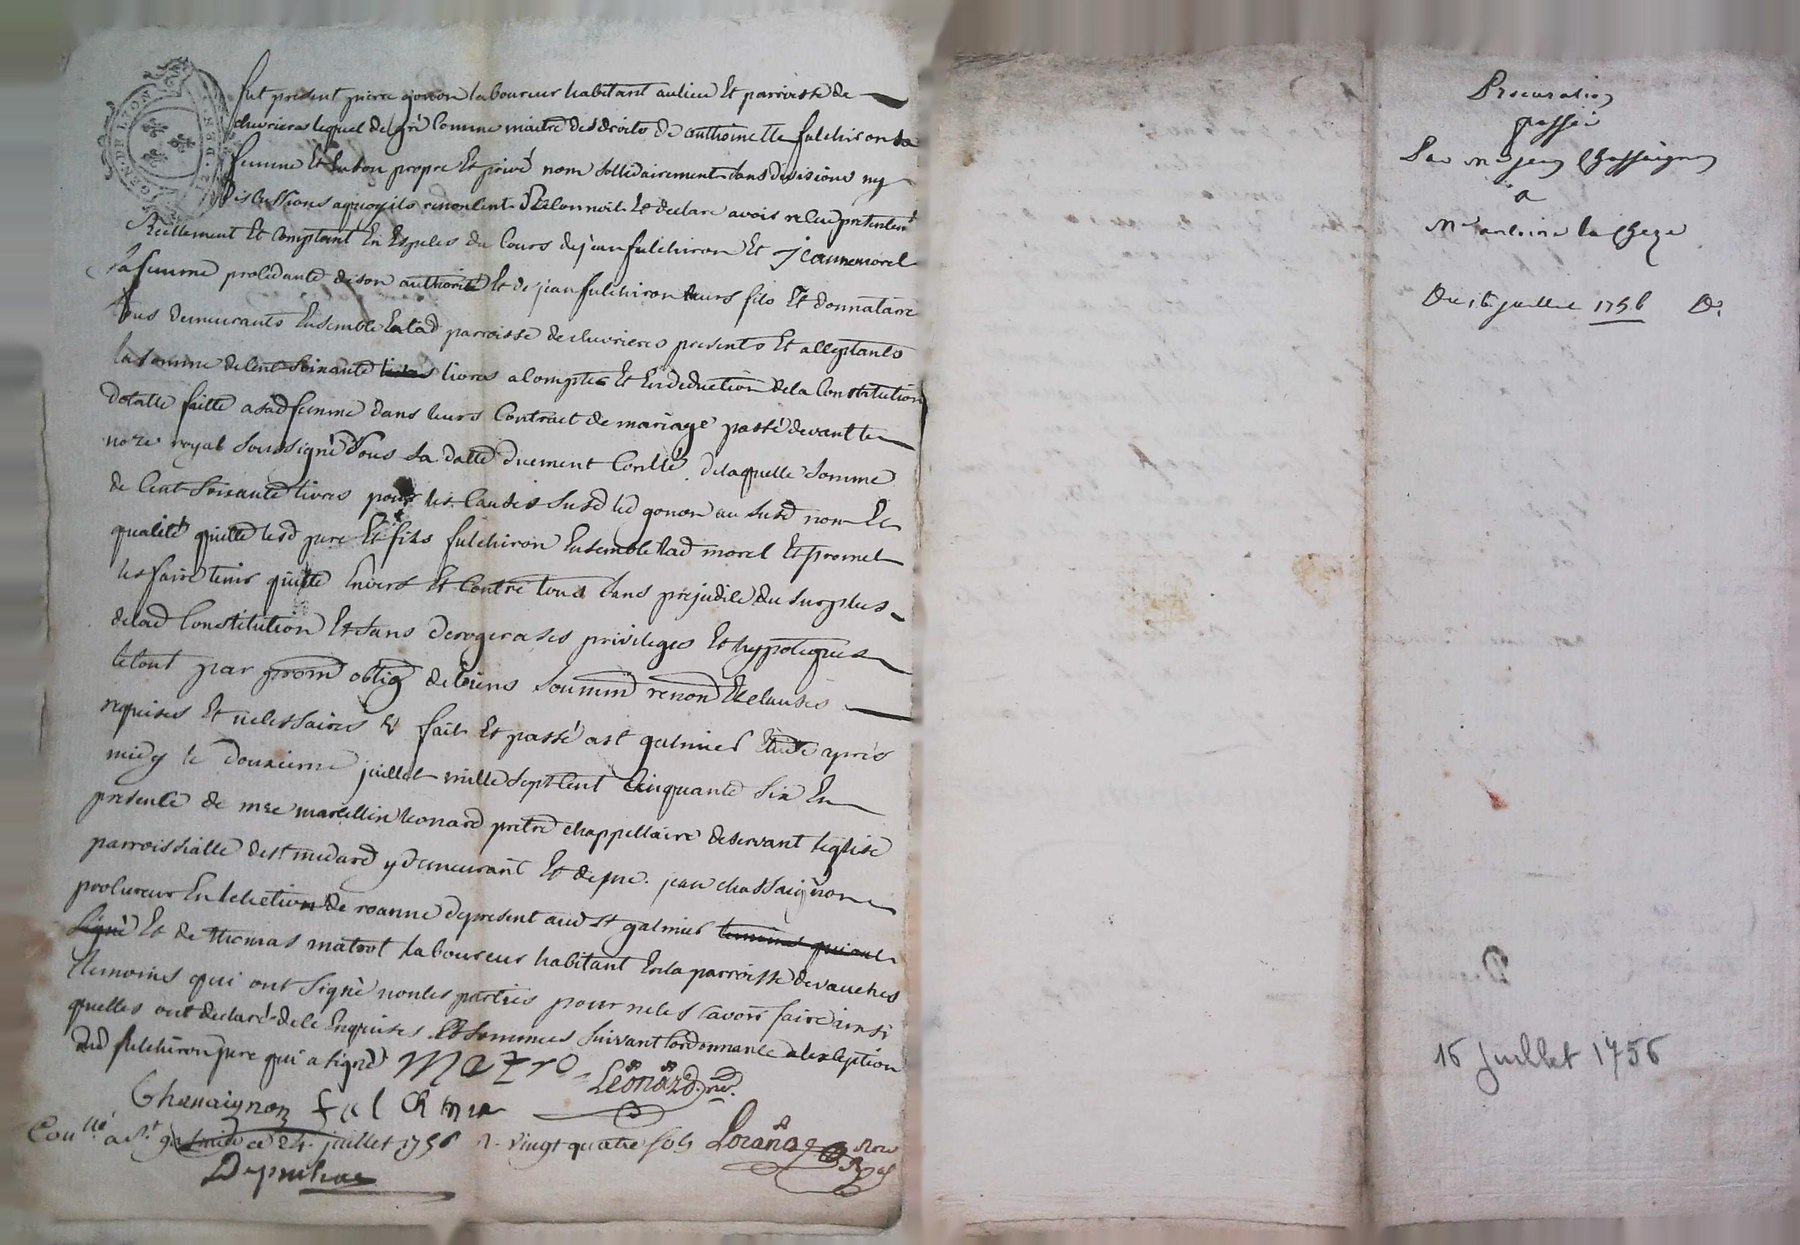 GEN. DE LYON
fut present pierre gonon laboureur habitant au lieu Et parroisse de
chevrieres lequel de gré Comme maitre des droits de anthoinette fulchiron sa
femme Et En son propre Et privé nom sollidairement sans divisions ny
discussions aquoy ils renoncent Reconnoit Et declare avoir recu presentemt
Reellement Et Comptant En Especes du Cours de jean fulchiron Et jeanne morel
sa femme procedante de son authorité Et de jean fulchiron leurs fils Et donnataire
tous demeurants Ensemble En lad parroisse de chevrieres presents Et acceptants
la somme de Cent soixante livres acompte Et En deduction de la Constitution
dotalle faitte a sad femme dans leurs Contract de mariage passé devant le
nore royal soussigné sous sa datte duement Conllé de laquelle somme
de Cent soixante livres pour les Causes susd led gonon au susd nom Et
qualité quitte lesd pere Et fils fulchiron Ensemble lad morel Et promet
les faire tenir quitte Envers Et Contre tous sans prejudice du surplus
de lad Constitution Et sans deroger a ses privileges Et hypoteques
le tout par prom oblig de biens soumm renon Et clauses
requises Et necessaires & fait Et passé a st galmier Etude apres
midy le douzieme juillet mille sept Cent Cinquante six En
presence de mre marcellin leonard pretre chappellaire deservant l'eglise
parroissialle de st medard y demeurant Et de me jean chassaignon
procureur En l'election de roanne de present aud st galmier temoins qui ont
signé Et de thomas matrot laboureur habitant En la parroisse de vauches
temoins qui ont signé non les parties pour ne les savoir faire ainsi
quelles ont declaré de ce Enquises Et sommees suivant l'ordonnance a l'exception
dud fulchiron pere qui a signé Matro Leonard pre
Chassaignon fulChiron
Conllé a St galmier ce 24 juillet 1756 R. vingt quatre sols
Procuration
passée
Par Me jean Chassaignon
a
Me antoine la Cheze
Du 16 juillet 1756 D.
16 Juillet 1756